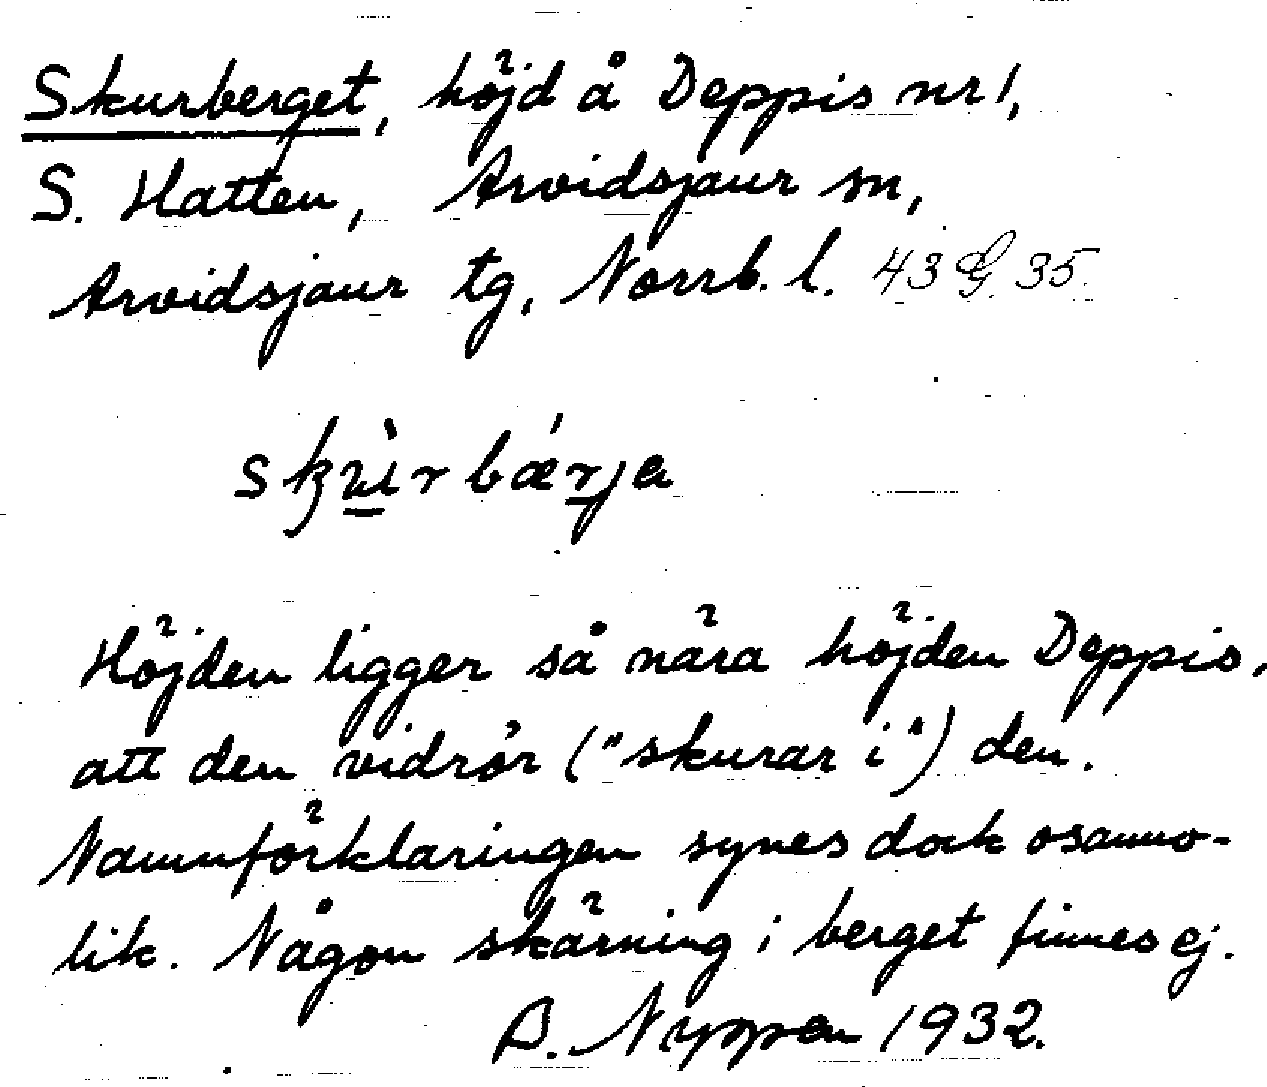 Skurberget, höjd å Deppis nr 1,
S. Hatten, Arvidsjaur sn,
Arvidsjaur tg, Norrb. l. 43 G 35.
Höjden ligger så nära höjden Deppis,
att den vidrör ("skurar i") den.
Namnförklaringen synes dock osanno-
lik. Någon skärning i berget finnes ej.
Nyppen 1932.